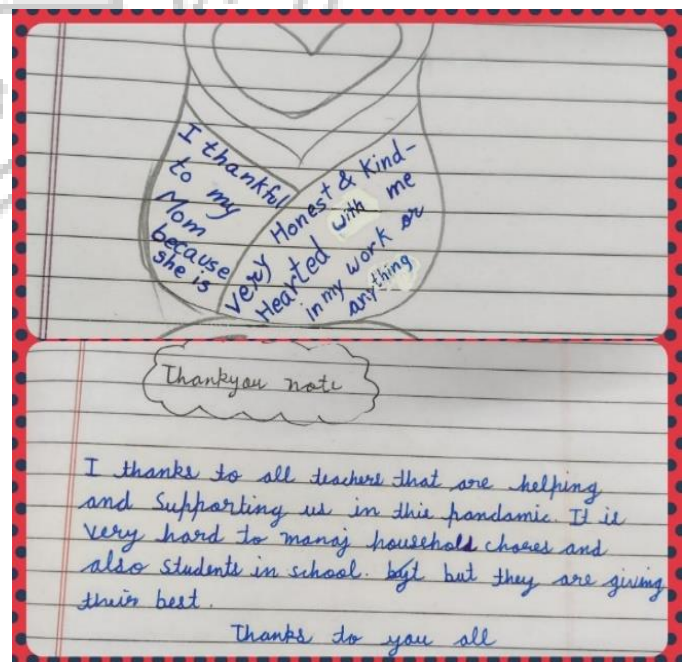 I thankful
to my
Mom
because
she is
very Honest & Kind-
Hearted with me
in my work or
anything
Thankyou note
I thanks to all teachers that are helping
and Supporting us in this pandamic. It is
very hard to manaj household chores and
also students in school. byt but they are giving
their best.
Thanks to you all